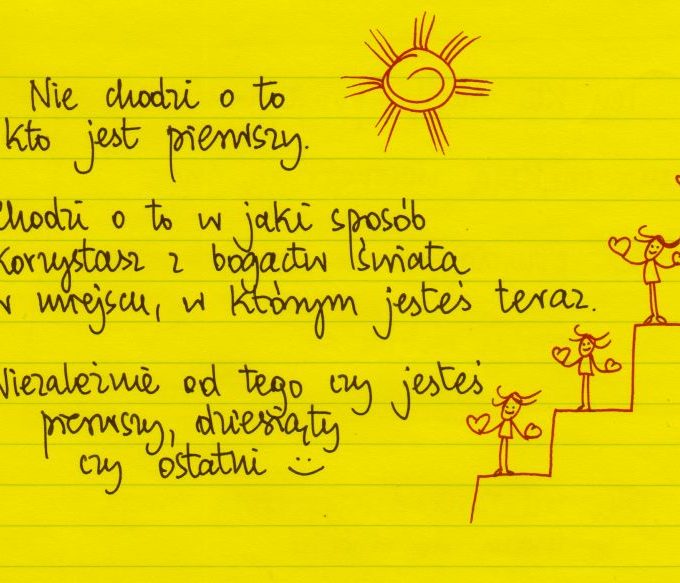 Nie chodzi o to
kto jest pierwszy.
Chodzi o to w jaki sposób
korzystasz z bogactw świata
w miejscu, w którym jesteś teraz.
Niezależnie od tego czy jesteś
pierwszy, dziesiąty
czy ostatni :)